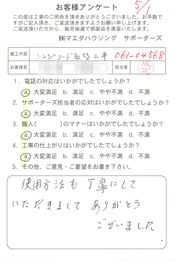 お客様アンケート
5/1
この度は工事のご用命を頂きありがとうございました。お手数で
すがご記入頂き、ご返送頂きますようお願い申し上げます。
ご返送頂いた方から、毎月抽選で感謝品を進呈いたします。
㈱マエダハウジング サポーターズ
施工内容
工事
061-04568
担当者
1. 電話の対応はいかがでしたでしょうか？
ⓐ 大変満足 b. 満足 c. やや不満 d. 不満
2. サポーターズ担当者の対応はいかがでしたでしょうか？
ⓐ 大変満足 b. 満足 c. やや不満 d. 不満
3. 職人( )のマナーはいかがでしたでしょうか？
ⓐ 大変満足 b. 満足 c. やや不満 d. 不満
4. 工事の仕上がりはいかがでしたでしょうか？
ⓐ 大変満足 b. 満足 c. やや不満 d. 不満
5. その他、ご意見ご要望をお聞かせ下さい。
使用方法も丁寧にして
いただきまして ありがとう
ございました